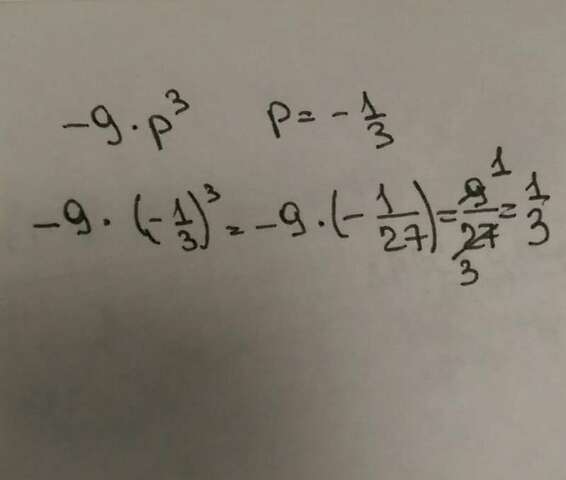 -9 · p³ p = -1/3
-9 · (-1/3)³ = -9 · (-1/27) = 9 1/27 3 = 1/3